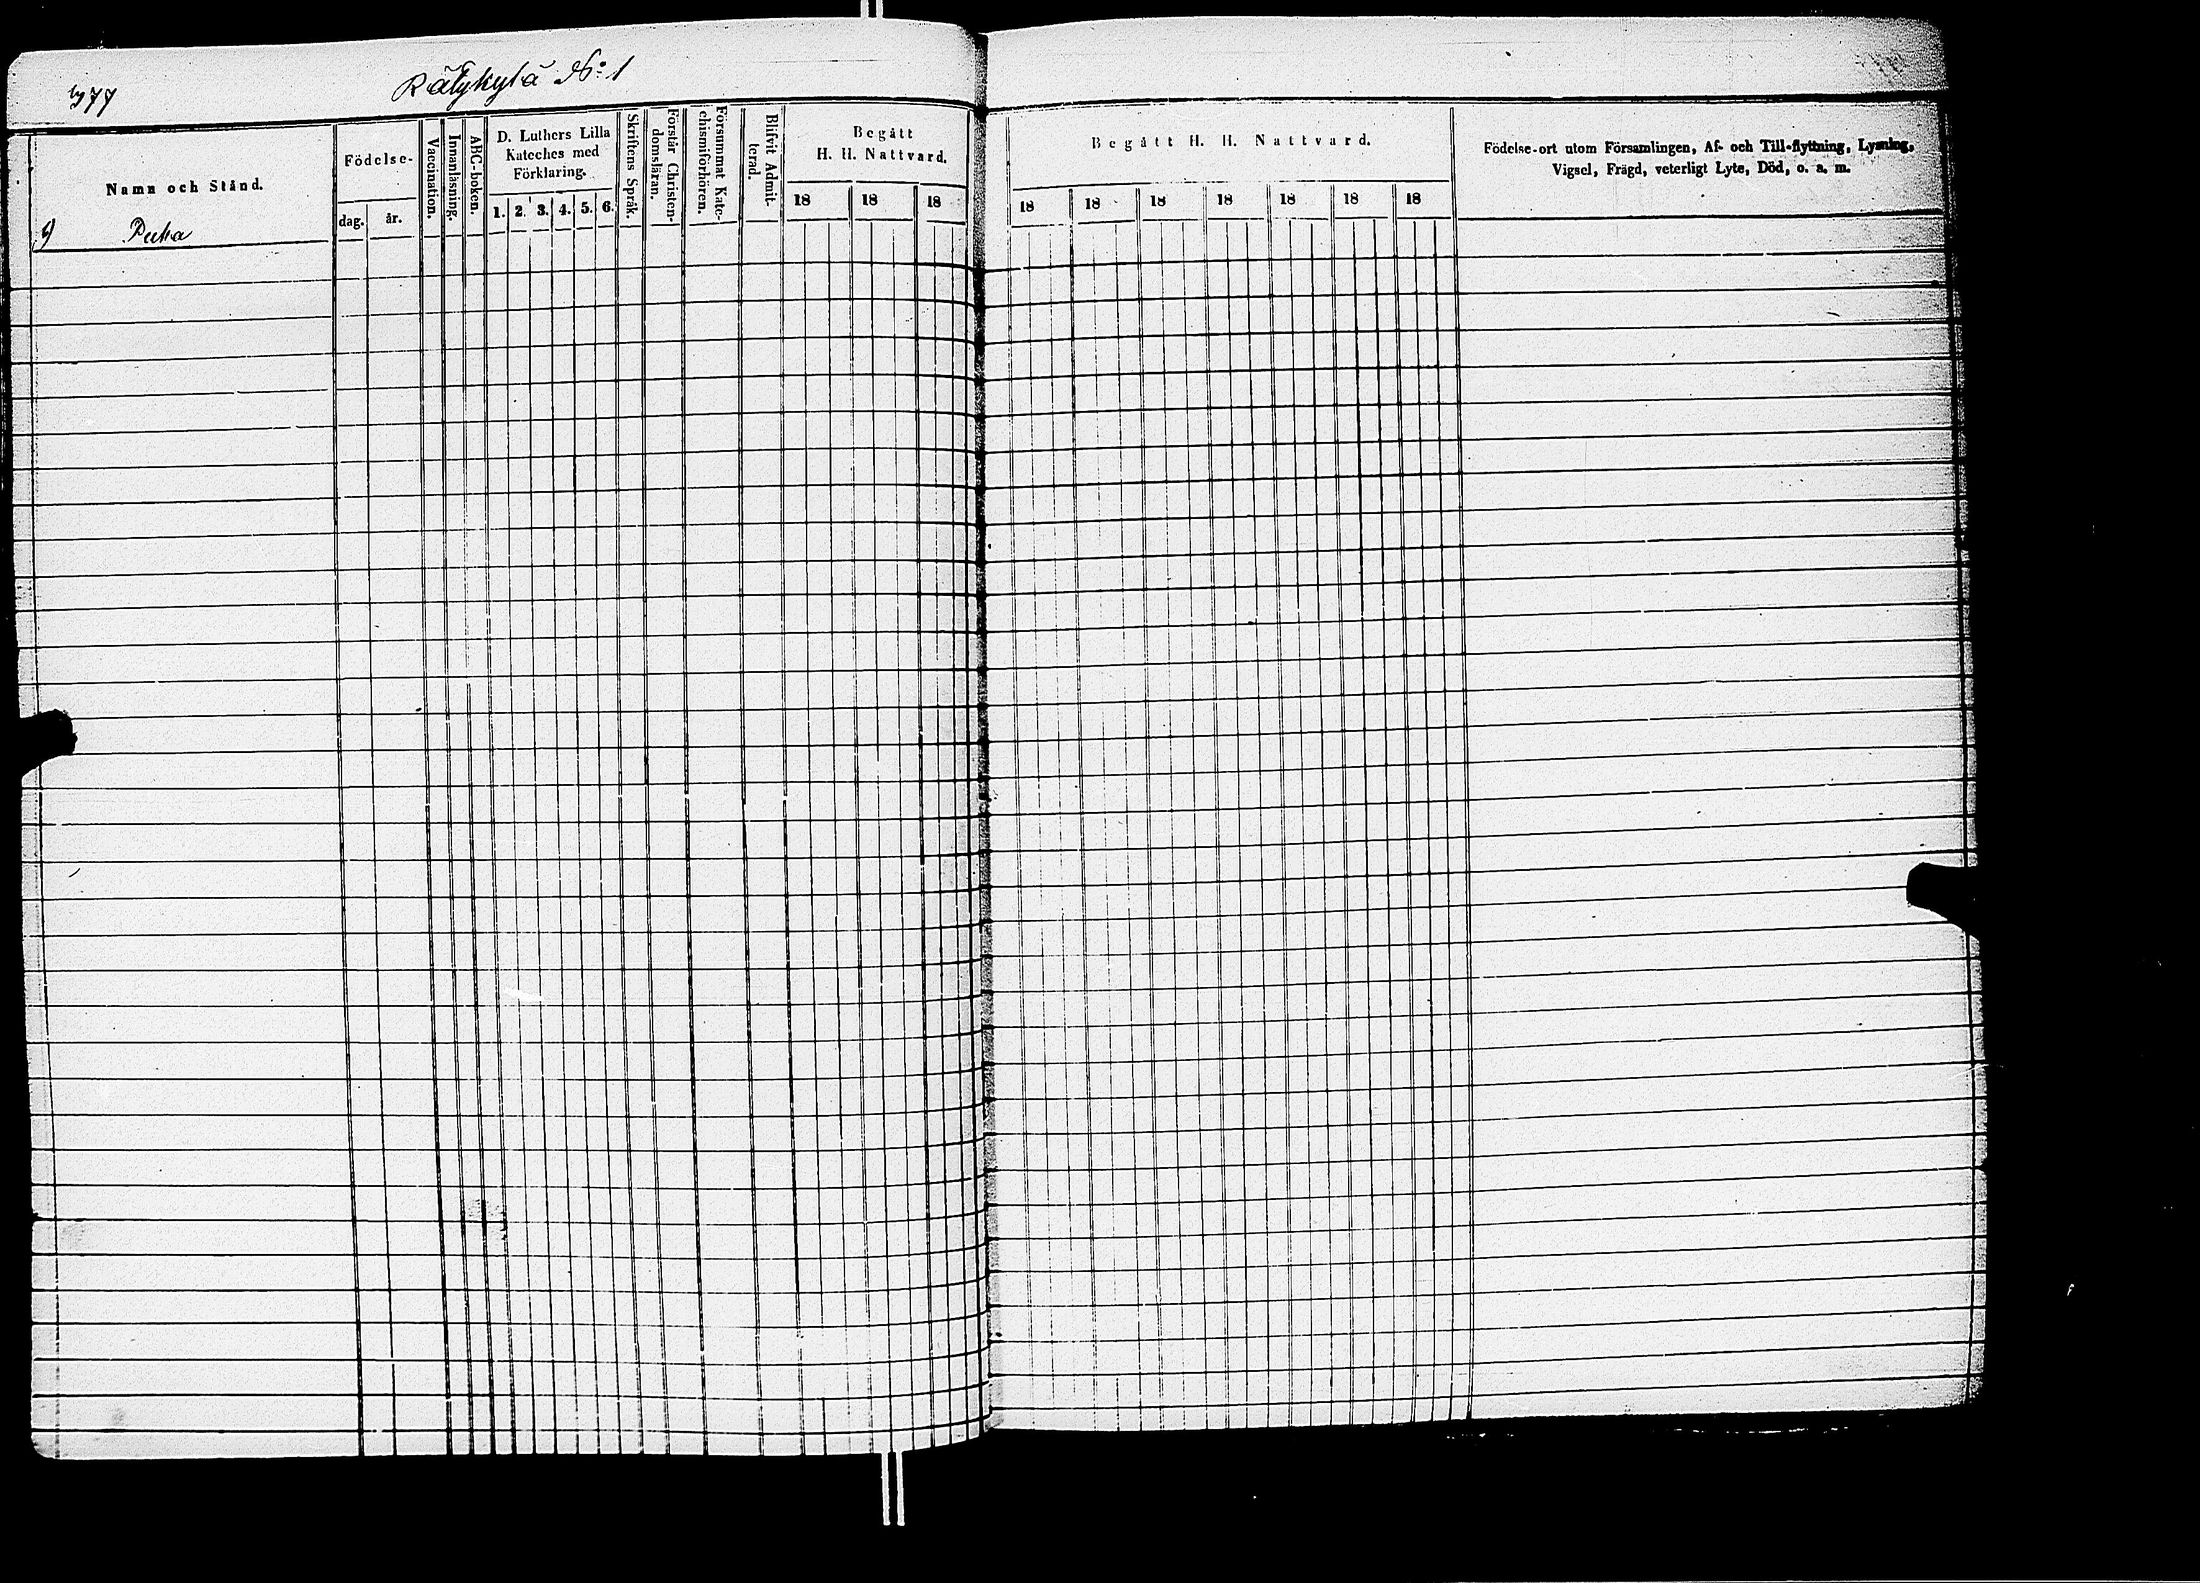 Rätykylä No: 1
Namn och Stånd.
Födelse-
dag. år.
Vaccination.
Innanläsning.
ABC-boken.
D. Luthers Lilla
Kateches med
Förklaring.
1. 2. 3. 4. 5. 6.
Skriftens Språk.
Förstår Christen-
domsläran.
Försummat Kate-
chismiförhören.
Blifvit Admit-
terad.
Begått
H. H. Nattvard.
18 18 18
Begått H. H. Nattvard.
18 18 18 18 18 18 18
Födelse-ort utom Församlingen, Af- och Till-flyttning, Lysning,
Vigsel, Frägd, veterligt Lyte, Död, o. s. m.